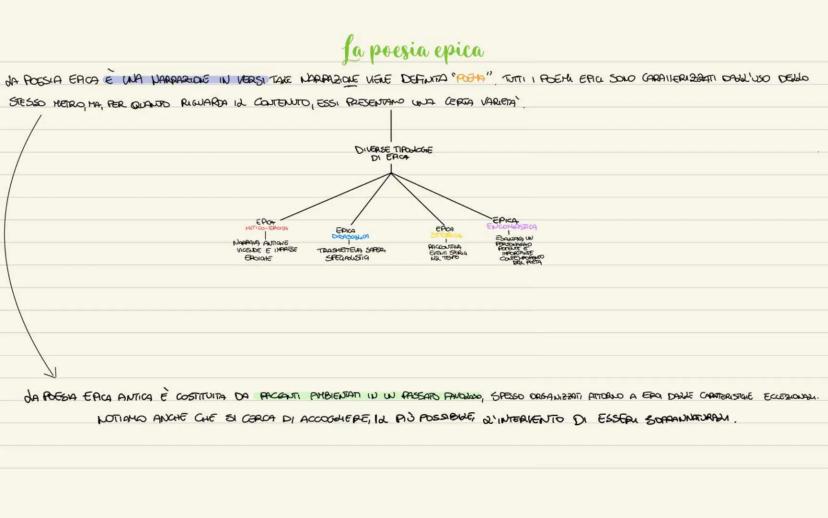 La poesia epica
LA POESIA EPICA È UNA NARRAZIONE IN VERSI TALE NARRAZIONE VIENE DEFINITA "POEMA". TUTTI I POEMI EPICI SONO CARATTERIZZATI DALL'USO DELLO
STESSO METRO, MA, PER QUANTO RIGUARDA IL CONTENUTO, ESSI PRESENTANO UNA CERTA VARIETÀ.
DIVERSE TIPOLOGIE
DI EPICA
EPICA
MITICO-EROICA
NARRAVA ANTICHE
VICENDE E IMPRESE
EROICHE
EPICA
DIDASCALICA
TRASMETTEVA SAPERI
SPECIALISTICI
EPICA
STORICA
RACCONTAVA
EVENTI STORICI
NEL TEMPO
EPICA
ENCOMIASTICA
ESALTAVA UN
PERSONAGGIO
POTENTE E
IMPORTANTE
CONTEMPORANEO
DEL POETA
LA POESIA EPICA ANTICA È COSTITUITA DA RACCONTI AMBIENTATI IN UN PASSATO FAVOLOSO, SPESSO ORGANIZZATI ATTORNO A EROI DALLE CARATTERISTICHE ECCEZIONALI.
NOTIAMO ANCHE CHE SI CERCA DI ACCOGLIERE, IL PIÙ POSSIBILE, L'INTERVENTO DI ESSERI SOPRANNATURALI.